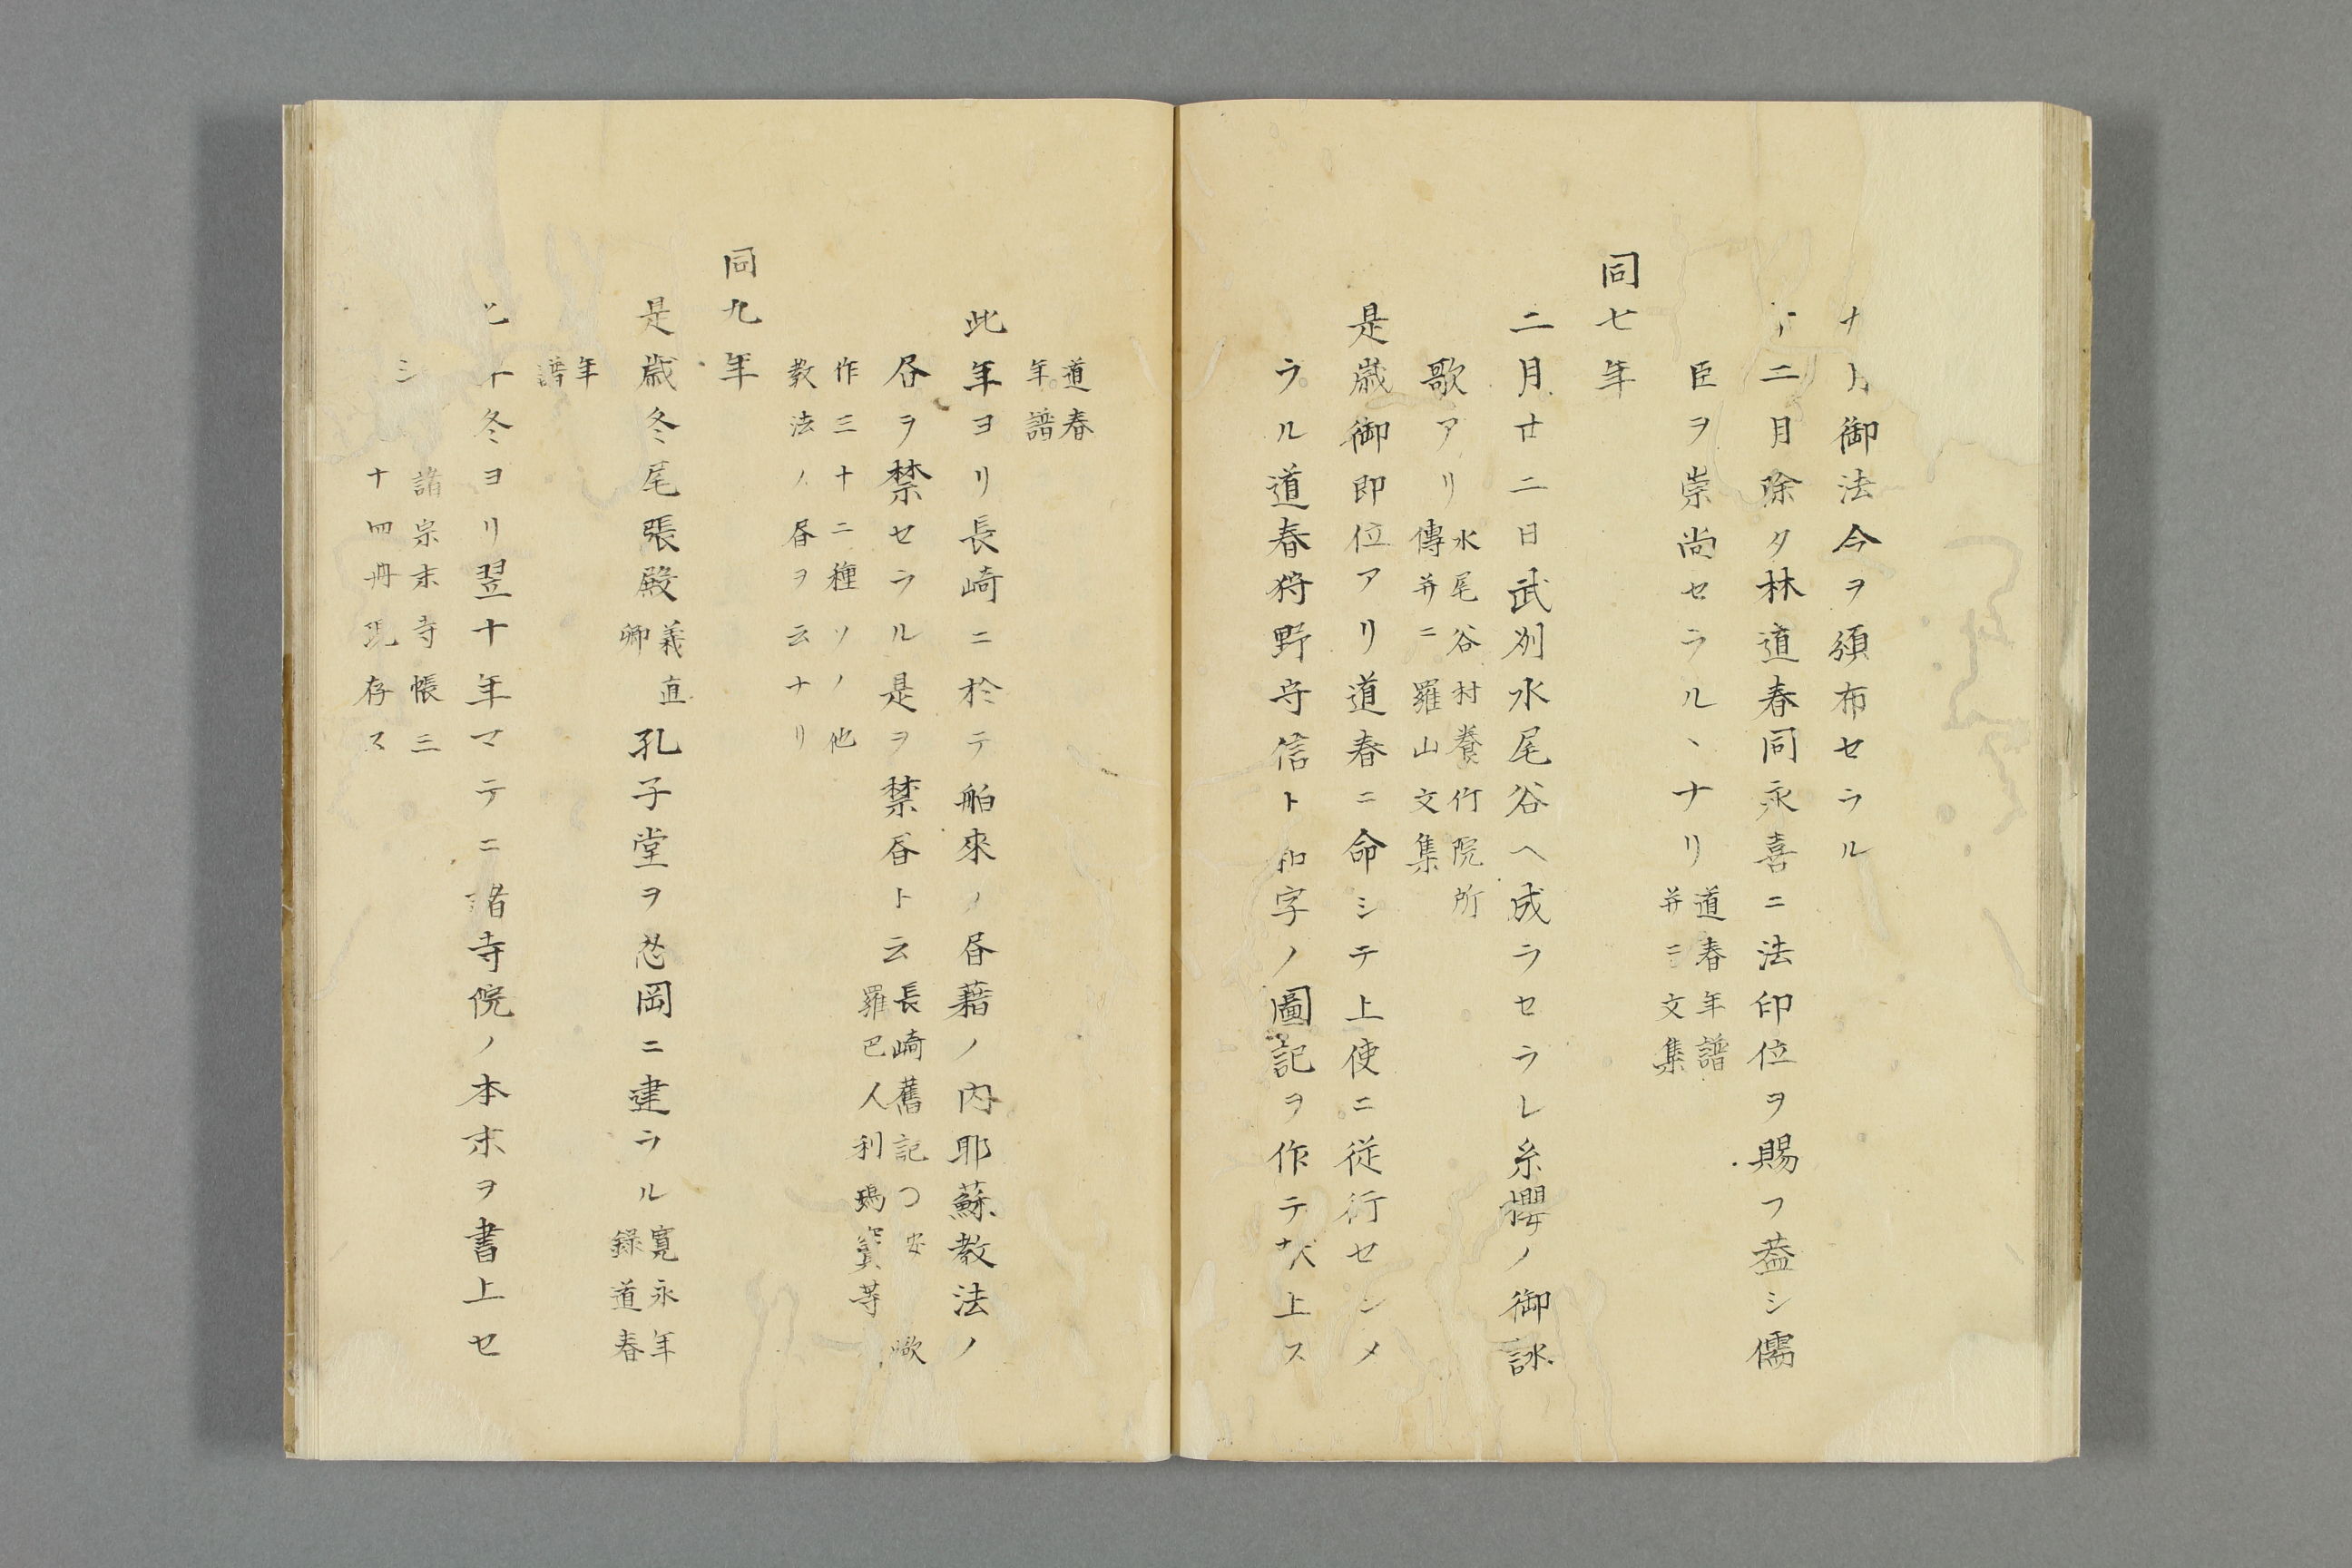 御法令ヲ頒布セラル
二月除夕林道春同永喜ニ法印位ヲ賜フ蓋シ儒
臣ヲ崇尚セラルヽナリ
道春年譜
并ニ文集
同七年
二月廿二日武刕水尾谷ヘ成ラセラレ糸櫻ノ御詠
歌アリ
水尾谷村養竹院所
傳并ニ羅山文集
是歳御即位アリ道春ニ命シテ上使ニ従行セシメ
ラル道春狩野守信ト和字ノ圖記ヲ作テ上ス
道春
年譜
此年ヨリ長崎ニ於テ舶來ノ昏藉ノ内耶蘇教法ノ
昏ヲ禁セラル是ヲ禁昏ト云
長崎舊記
歟
羅巴人利瑪竇等
作三十二種ソノ他
教法ノ昏ヲ云ナリ
同九年
是歳冬尾張殿
義直
卿
孔子堂ヲ忍岡ニ建ラル
寛永年
録道春
年
譜
冬ヨリ翌十年マテニ諸寺院ノ本末ヲ書上セ
シ
諸宗末寺帳三
十四冊現存ス